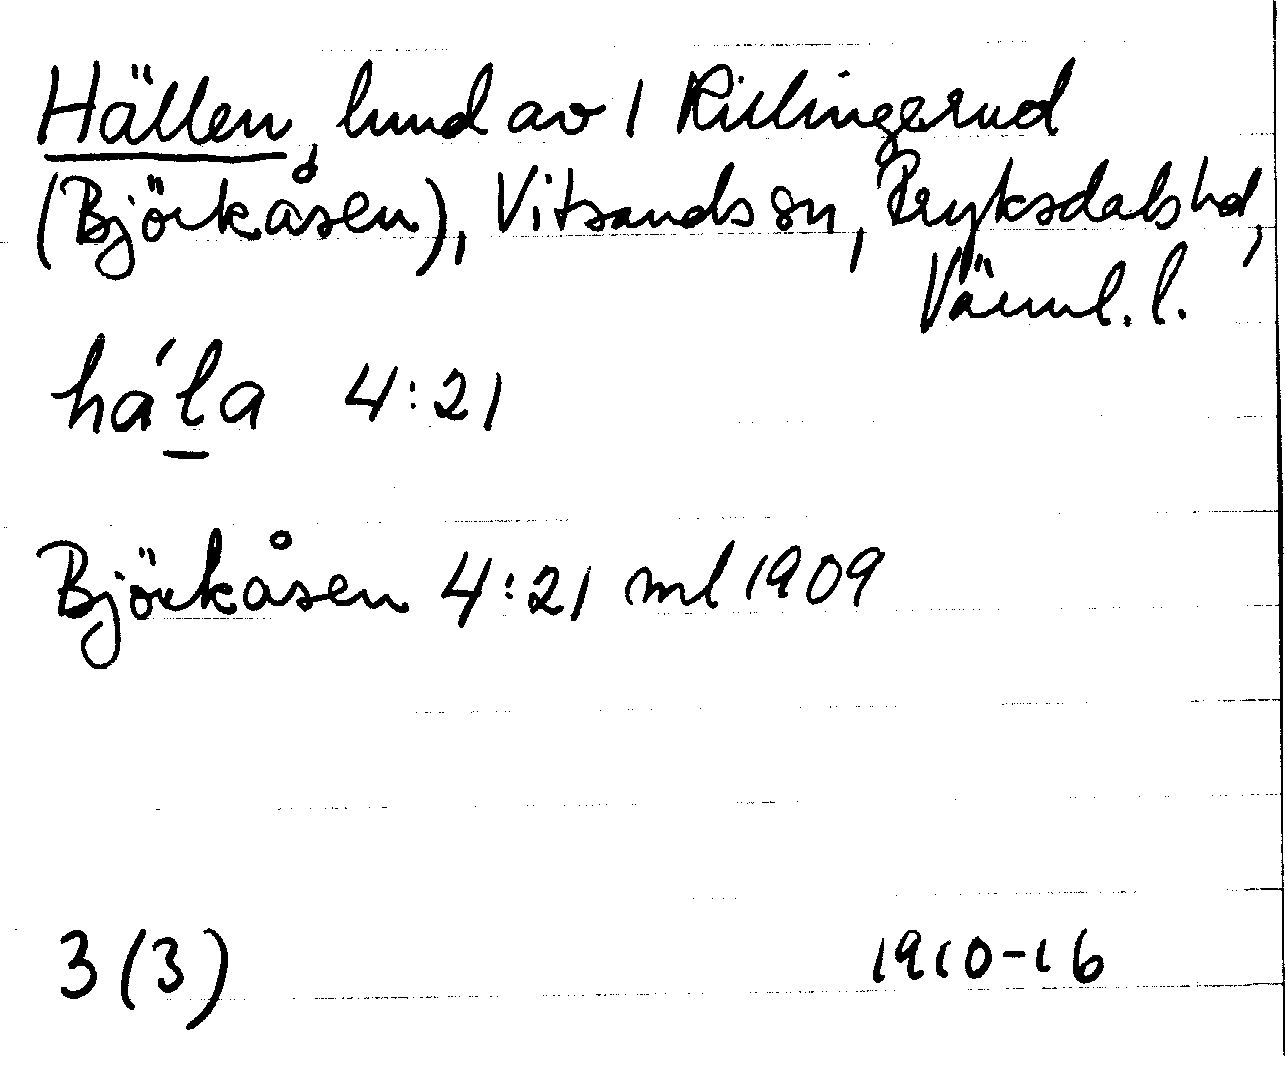 Hällen, lund av 1 Rislingerud
(Björkåsen), Vitsands sn, Fryksdals hd,
Värml. l.
há̱la 4:21
Björkåsen 4:21 ml 1909
3 (3) 1910-16